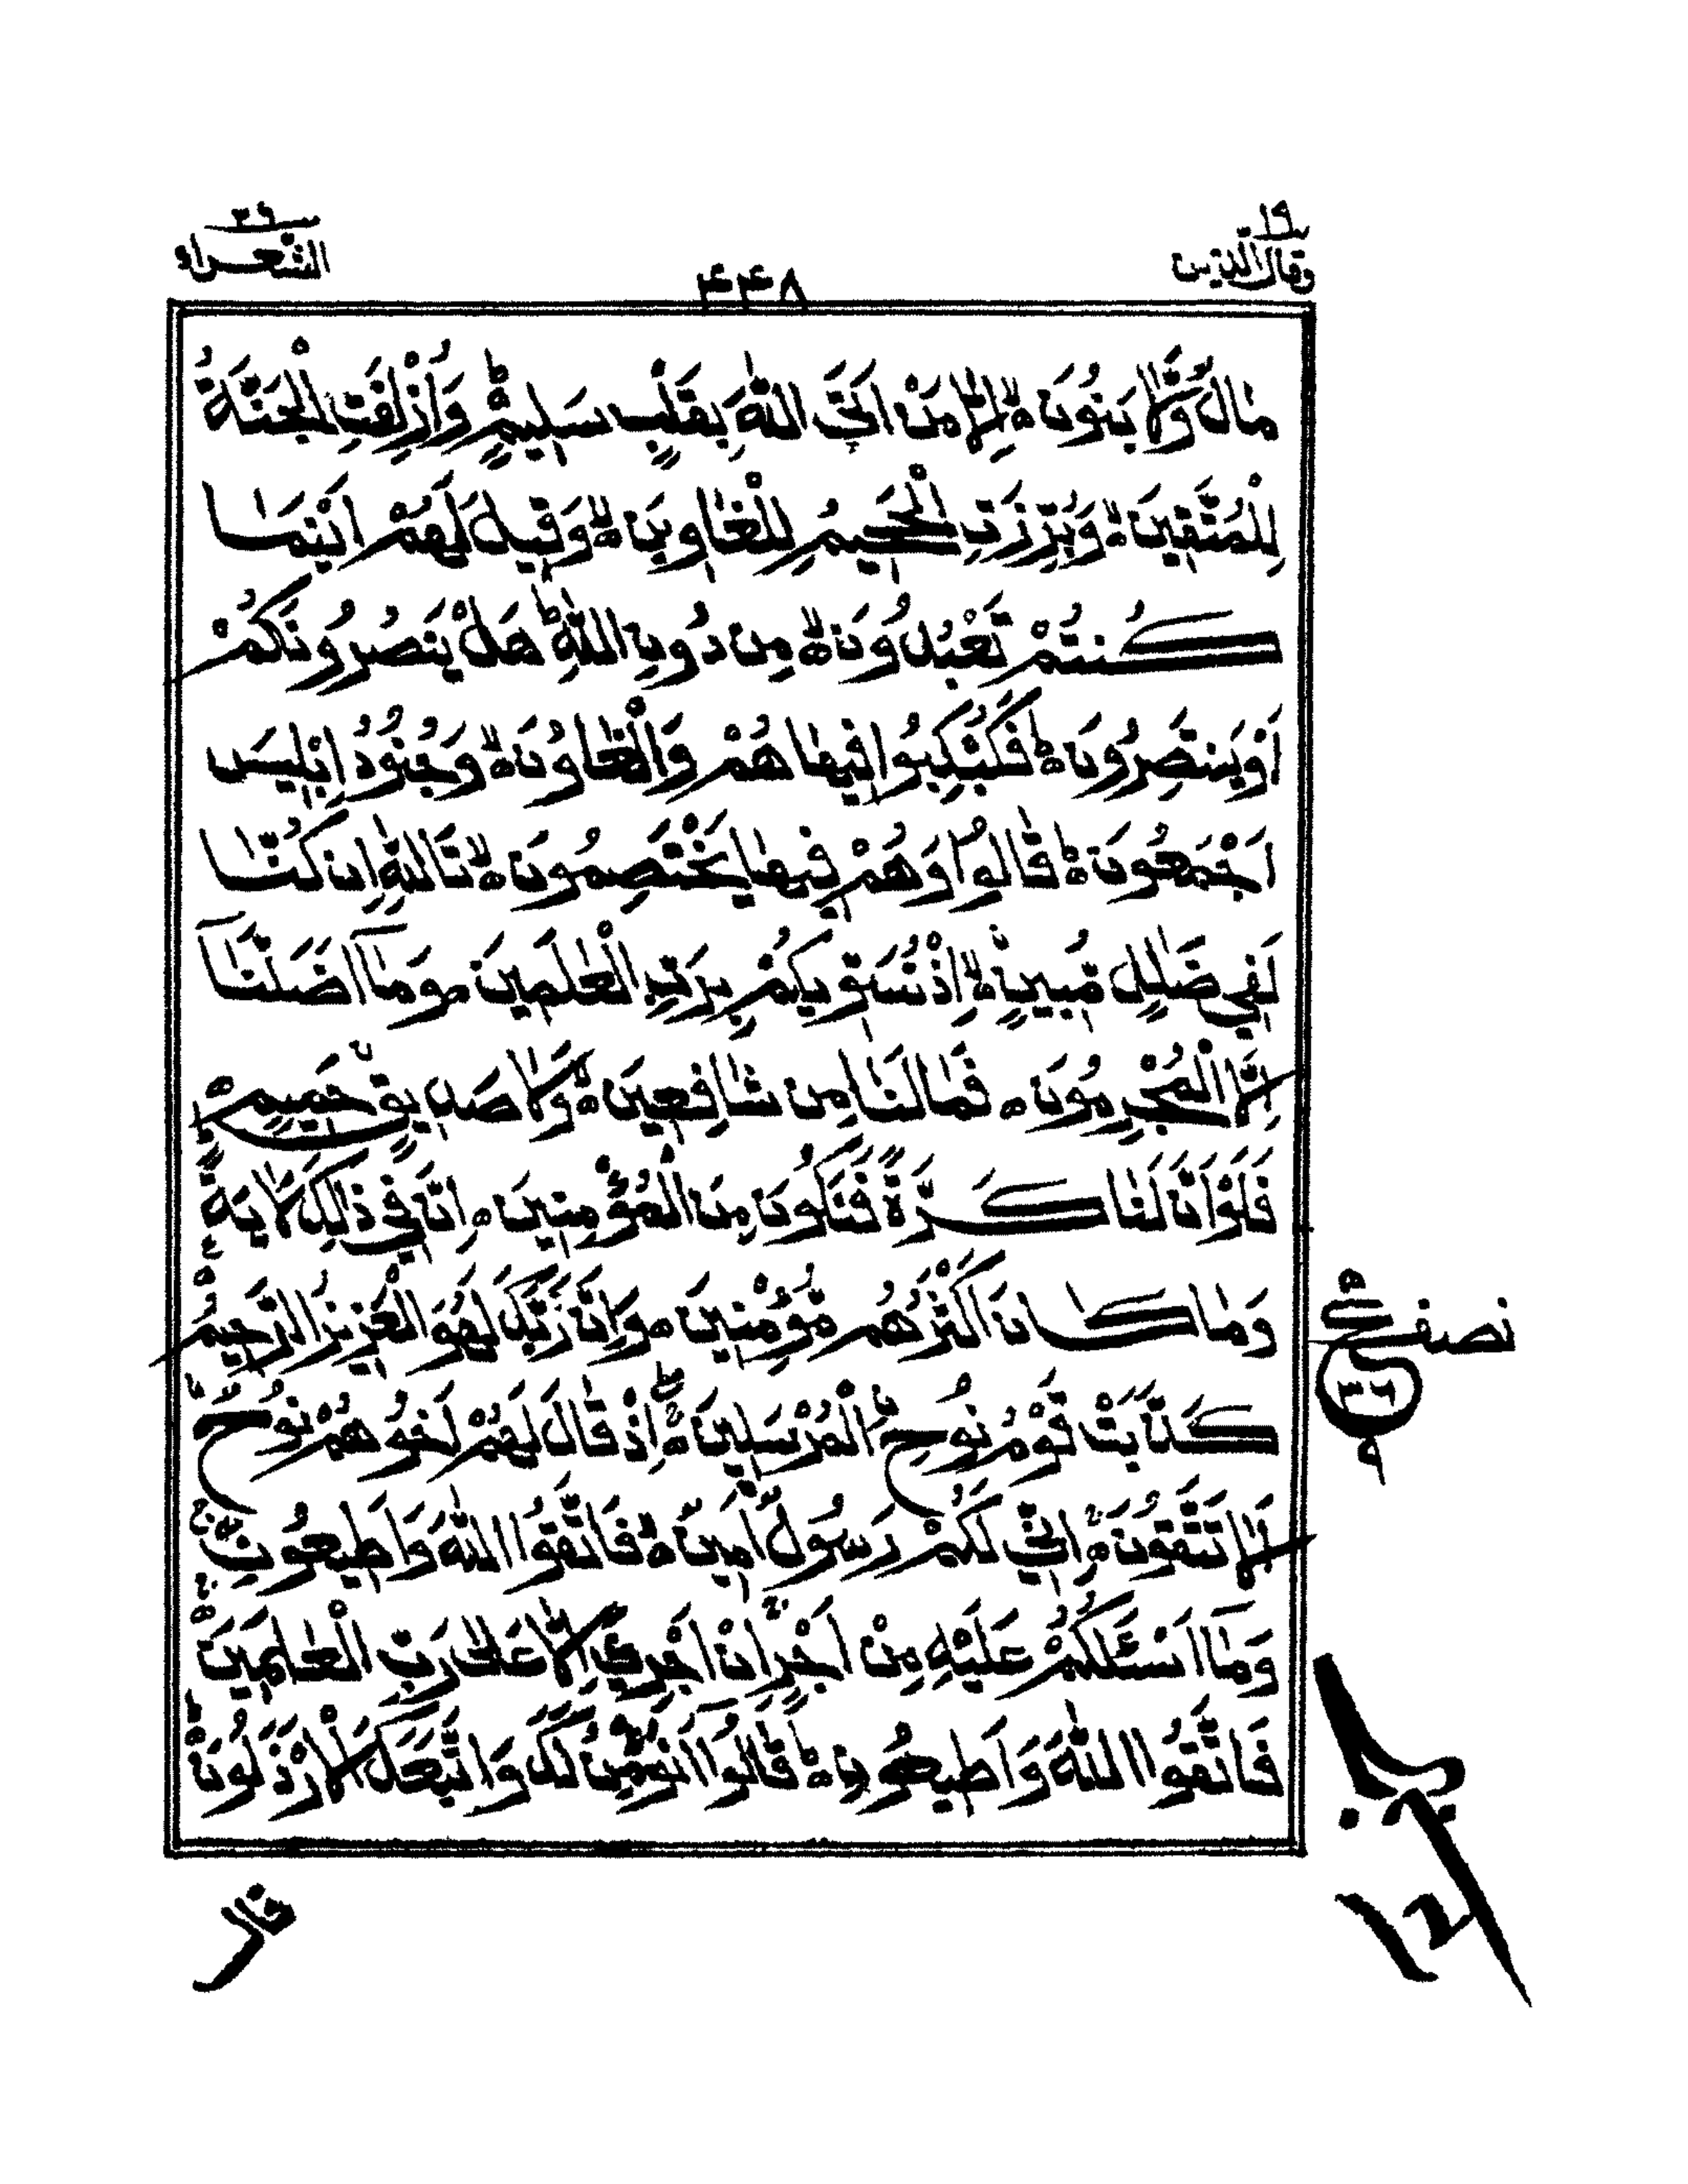 ١٩
وقال الذين
٤٤٨
٢٦
الشعراء
مَالٌ وَّلَا بَنُوْنَ ۙ اِلَّا مَنْ اَتَى اللّٰهَ بِقَلْبٍ سَلِيْمٍ ؕ وَاُزْلِفَتِ الْجَنَّةُ
لِلْمُتَّقِيْنَ ۙ وَبُرِّزَتِ الْجَحِيْمُ لِلْغٰوِيْنَ ۙ وَقِيْلَ لَهُمْ اَيْنَمَا
كُنْتُمْ تَعْبُدُوْنَ ۙ مِنْ دُوْنِ اللّٰهِ ؕ هَلْ يَنْصُرُوْنَكُمْ
اَوْ يَنْتَصِرُوْنَ ؕ فَكُبْكِبُوْا فِيْهَا هُمْ وَالْغَاوٗنَ ۙ وَجُنُوْدُ اِبْلِيْسَ
اَجْمَعُوْنَ ؕ قَالُوْا وَهُمْ فِيْهَا يَخْتَصِمُوْنَ ۙ تَاللّٰهِ اِنْ كُنَّا
لَفِيْ ضَلٰلٍ مُّبِيْنٍ ۙ اِذْ نُسَوِّيْكُمْ بِرَبِّ الْعٰلَمِيْنَ ۝ وَمَاۤ اَضَلَّنَاۤ
اِلَّا الْمُجْرِمُوْنَ ۝ فَمَا لَنَا مِنْ شَافِعِيْنَ ۙ وَلَا صَدِيْقٍ حَمِيْمٍ ؕ
فَلَوْ اَنَّ لَنَا كَرَّةً فَنَكُوْنَ مِنَ الْمُؤْمِنِيْنَ ۝ اِنَّ فِيْ ذٰلِكَ لَاٰيَةً ؕ
وَمَا كَانَ اَكْثَرُهُمْ مُّؤْمِنِيْنَ ۝ وَاِنَّ رَبَّكَ لَهُوَ الْعَزِيْزُ الرَّحِيْمُ ۝ ع
نصف
٣٦
٩
كَذَّبَتْ قَوْمُ نُوْحِ ۨالْمُرْسَلِيْنَ ۚ اِذْ قَالَ لَهُمْ اَخُوْهُمْ نُوْحٌ
اَلَا تَتَّقُوْنَ ۚ اِنِّيْ لَكُمْ رَسُوْلٌ اَمِيْنٌ ۙ فَاتَّقُوا اللّٰهَ وَاَطِيْعُوْنِ ۚ
وَمَاۤ اَسْـَٔلُكُمْ عَلَيْهِ مِنْ اَجْرٍ ۚ اِنْ اَجْرِيَ اِلَّا عَلٰى رَبِّ الْعٰلَمِيْنَ ۚ
فَاتَّقُوا اللّٰهَ وَاَطِيْعُوْنِ ؕ قَالُوْۤا اَنُؤْمِنُ لَكَ وَاتَّبَعَكَ الْاَرْذَلُوْنَ ؕ
قال